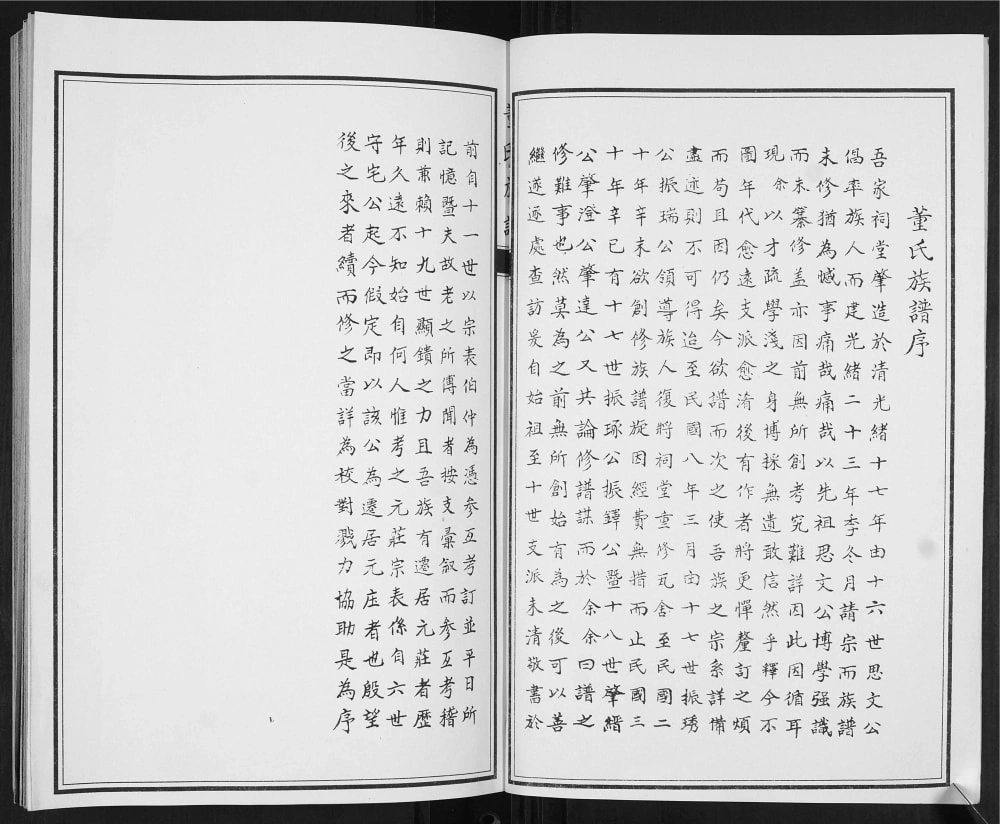 董氏族譜序
吾家祠堂肇造於清光緒十七年由十六世思文公
倡率族人而建光緒二十三年季冬月請宗而族譜
未修猶為憾事痛哉痛哉以先祖思文公博學强識
而未纂修盖亦因前無所創考究難詳因此因循耳
現余以才疏學淺之身博採無遺敢信然乎釋今不
圖年代愈遠支派愈淆後有作者將更憚釐訂之煩
而苟且因仍矣今欲譜而次之使吾族之宗系詳備
盡述則不可得迨至民國八年三月由十七世振琇
公振瑞公領導族人復將祠堂重修瓦舍至民國二
十年辛未欲創修族譜旋因經費無措而止民國三
十年辛巳有十七世振琢公振鐸公暨十八世肇縉
公肇澄公肇達公又共論修譜謀而於余余曰譜之
修難事也然莫為之前無所創始有為之後可以善
繼遂逐處查訪爰自始祖至十世支派未清敬書於
董氏族譜
前自十一世以宗表伯仲為憑參互考訂並平日所
記憶暨夫故老之所傳聞者按支彙敘而參互考稽
則兼賴十九世顯鐀之力且吾族有遷居元莊者歷
年久遠不知始自何人惟考之元莊宗表係自六世
守宅公起今假定即以該公為遷居元庄者也殷望
後之來者續而修之當詳為校對戮力協助是為序